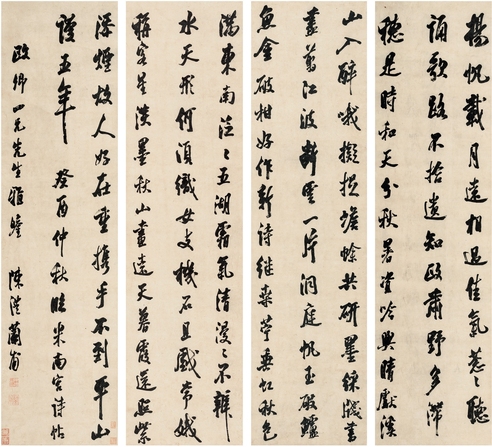 揚帆載月遠相過佳氣蔥〻聽
誦歌路不拾遺知政肅野多滯
穗是時和天分秋暑資吟興晴獻溪
山入醉哦擬捉蟾蜍共研墨綵牋書
盡剪江波斷雲一片洞庭帆玉破鱸
魚金破柑好作新詩繼桑苧垂虹秋色
滿東南泛〻五湖霜氣清漫〻不辨
水天形何須織女支機石且戲常娥
稱客星淡墨秋山畫遠天暮霞還照紫
添煙故人好在重攜手不到平山
謾五年 癸酉仲秋臨米南宮詩帖
政卿四兄先生雅鑒 陳澧蘭甫